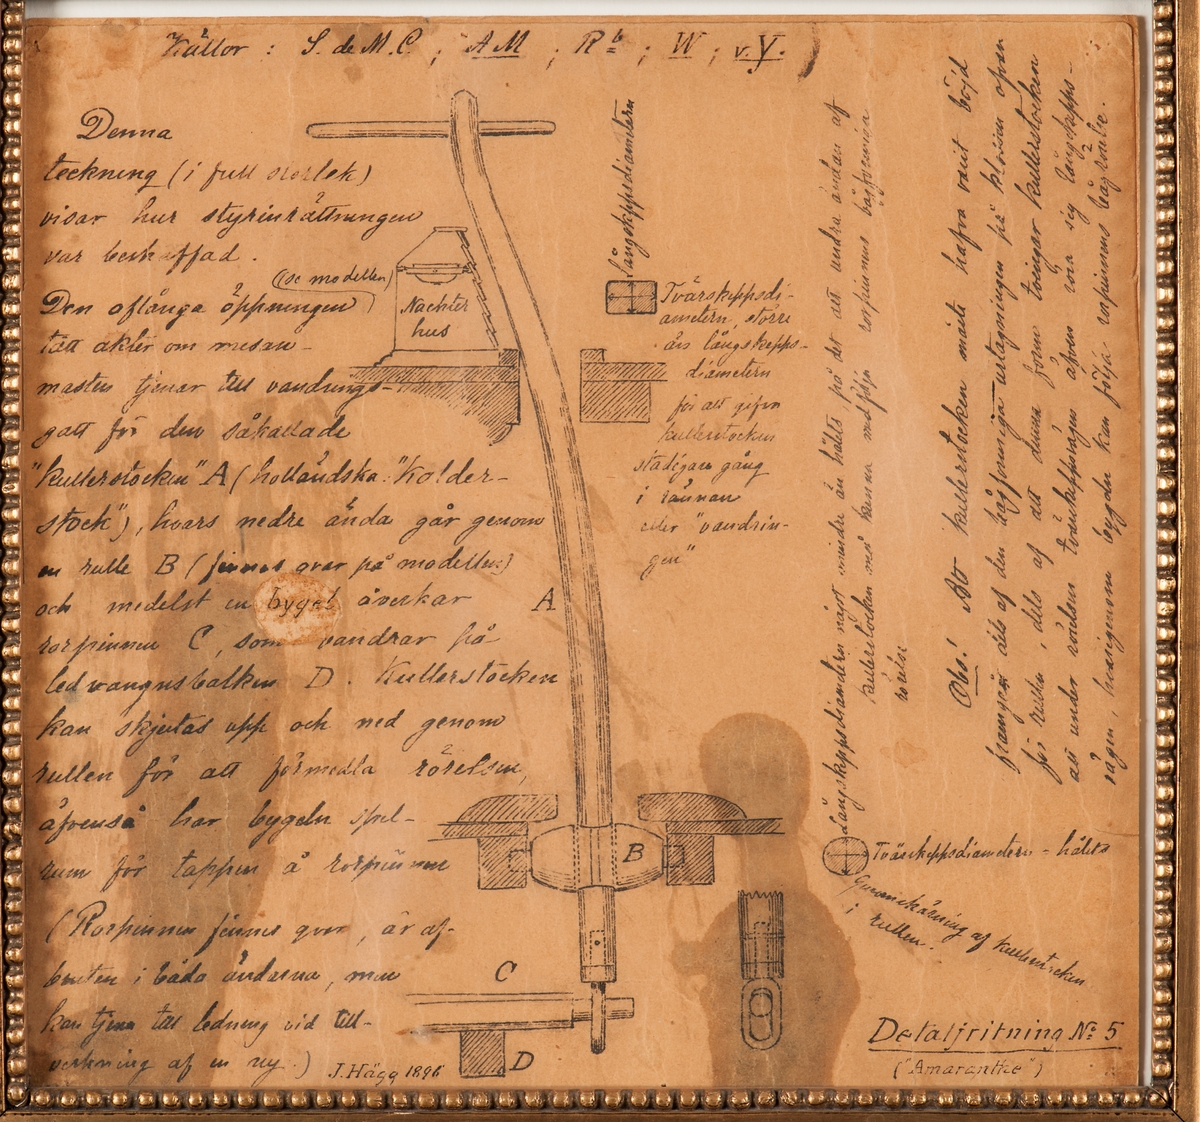 Källor : S. de M. C ; AM ; Rb ; W ; v. Y.
Denna
teckning (i full storlek)
visar hur styrinrättningen
var beskaffad.
(se modellen)
Den aflånga öppningen
tätt akter om mesan-
masten tjenar till vandrings-
gatt för den såkallade
"kullerstocken" A (holländska: "Kolder-
stock"), hvars nedre ända går genom
en rulle B (finnes qvar på modellen)
och medelst en bygel åverkar
rorpinnen C, som vandrar på
ledvangnsbalken D. Kullerstocken
kan skjutas upp och ned genom
rullen för att förmedla rörelsen,
äfvenså har bygeln spel-
rum för tappen å rorpinnen
(Rorpinnen finnes qvar, är af-
bruten i båda ändarna, men
kan tjena till ledning vid till-
verkning af en ny.)
J. Hägg 1896
Nachter
hus
A
B
C
D
långskeppsdiametern
Tvärskeppsdi-
ametern större
än långskepps-
diametern
för att gifva
kullerstocken
stadigare gång
i rännan
eller "vandrin-
gen"
Långskeppsdiametern något mindre än hålets, på det att undra ändan af
kullerstocken må kunna medfölja rorpinnens bågformiga
rörelse
Obs! Att kullerstocken måste hafva varit böjd
framgår dels af den bågformiga urtagningen på klossen ofvan
för rullen, dels af att denna form tvingar kullerstocken
att under rörelsen tvärskeppsvägen äfven röra sig långskepps-
vägen, hvarigenom bygeln kan följa rorpinnens bågrörelse.
Tvärskeppsdiametern = hålets
Genomskärning af kullerstocken
i rullen.
Detaljritning No 5
("Amaranthe")